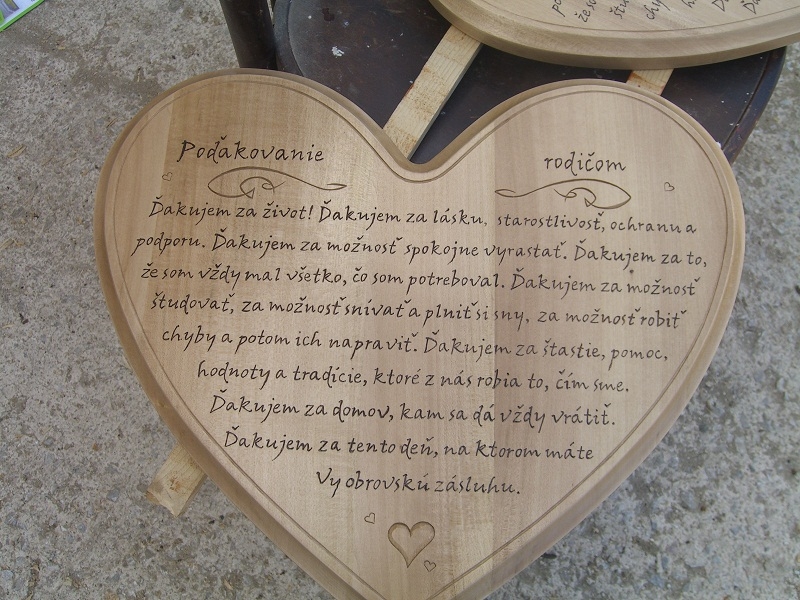 Poďakovanie rodičom
Ďakujem za život! Ďakujem za lásku, starostlivosť, ochranu a
podporu. Ďakujem za možnosť spokojne vyrastať. Ďakujem za to,
že som vždy mal všetko, čo som potreboval. Ďakujem za možnosť
študovať, za možnosť snívať a plniť si sny, za možnosť robiť
chyby a potom ich napraviť. Ďakujem za štastie, pomoc,
hodnoty a tradície, ktoré z nás robia to, čím sme.
Ďakujem za domov, kam sa dá vždy vrátiť.
Ďakujem za tento deň, na ktorom máte
Vy obrovskú zásluhu.